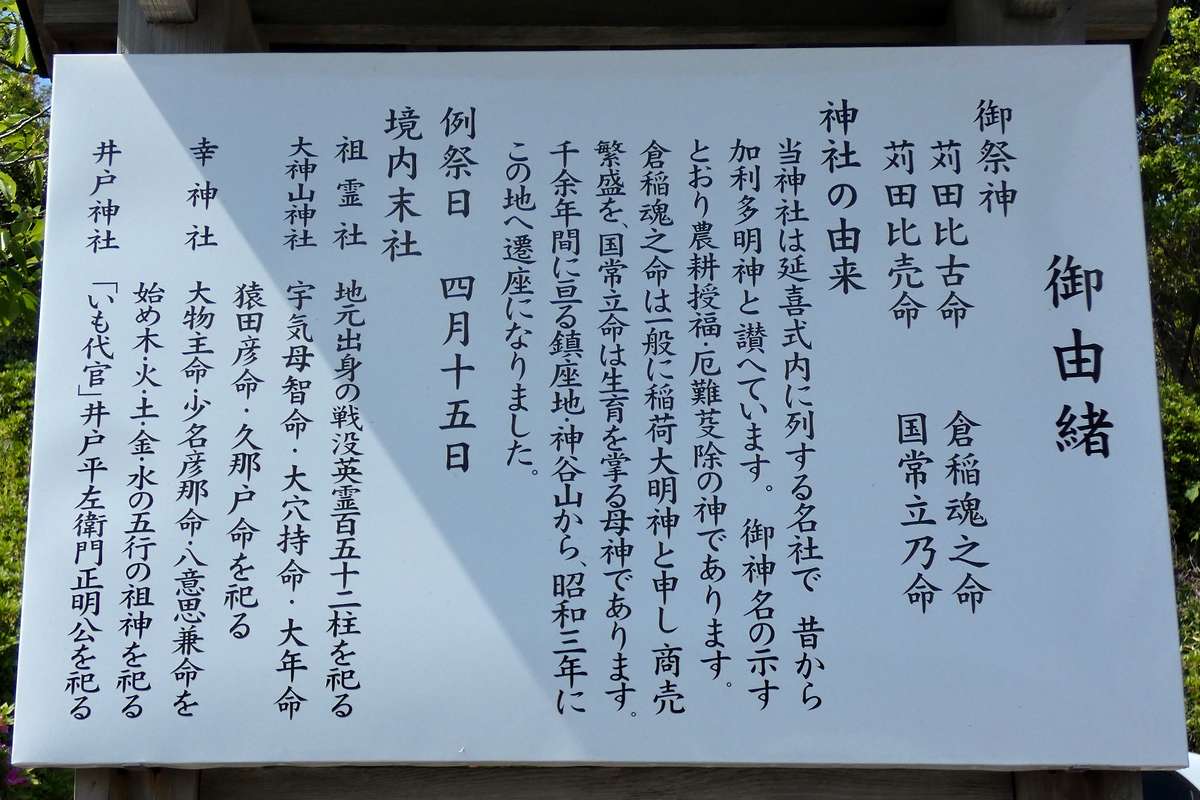 御由緒
御祭神
苅田比古命 倉稲魂之命
苅田比売命 国常立乃命
神社の由来
当神社は延喜式内に列する名社で 昔から
加利多明神と讃へています。 御神名の示す
とおり農耕授福・厄難芟除の神であります。
倉稲魂之命は一般に稲荷大明神と申し 商売
繁盛を、国常立命は生育を掌る母神であります。
千余年間に亘る鎮座地・神谷山から、昭和三年に
この地へ遷座になりました。
例祭日 四月十五日
境内末社
祖霊社 地元出身の戦没英霊百五十二柱を祀る
大神山神社 宇気母智命・大穴持命・大年命
猿田彦命・久那戸命を祀る
幸神社 大物王命・少名彦那命・八意思兼命を
始め木・火・土・金・水の五行の祖神を祀る
井戸神社 「いも代官」井戸平左衛門正明公を祀る